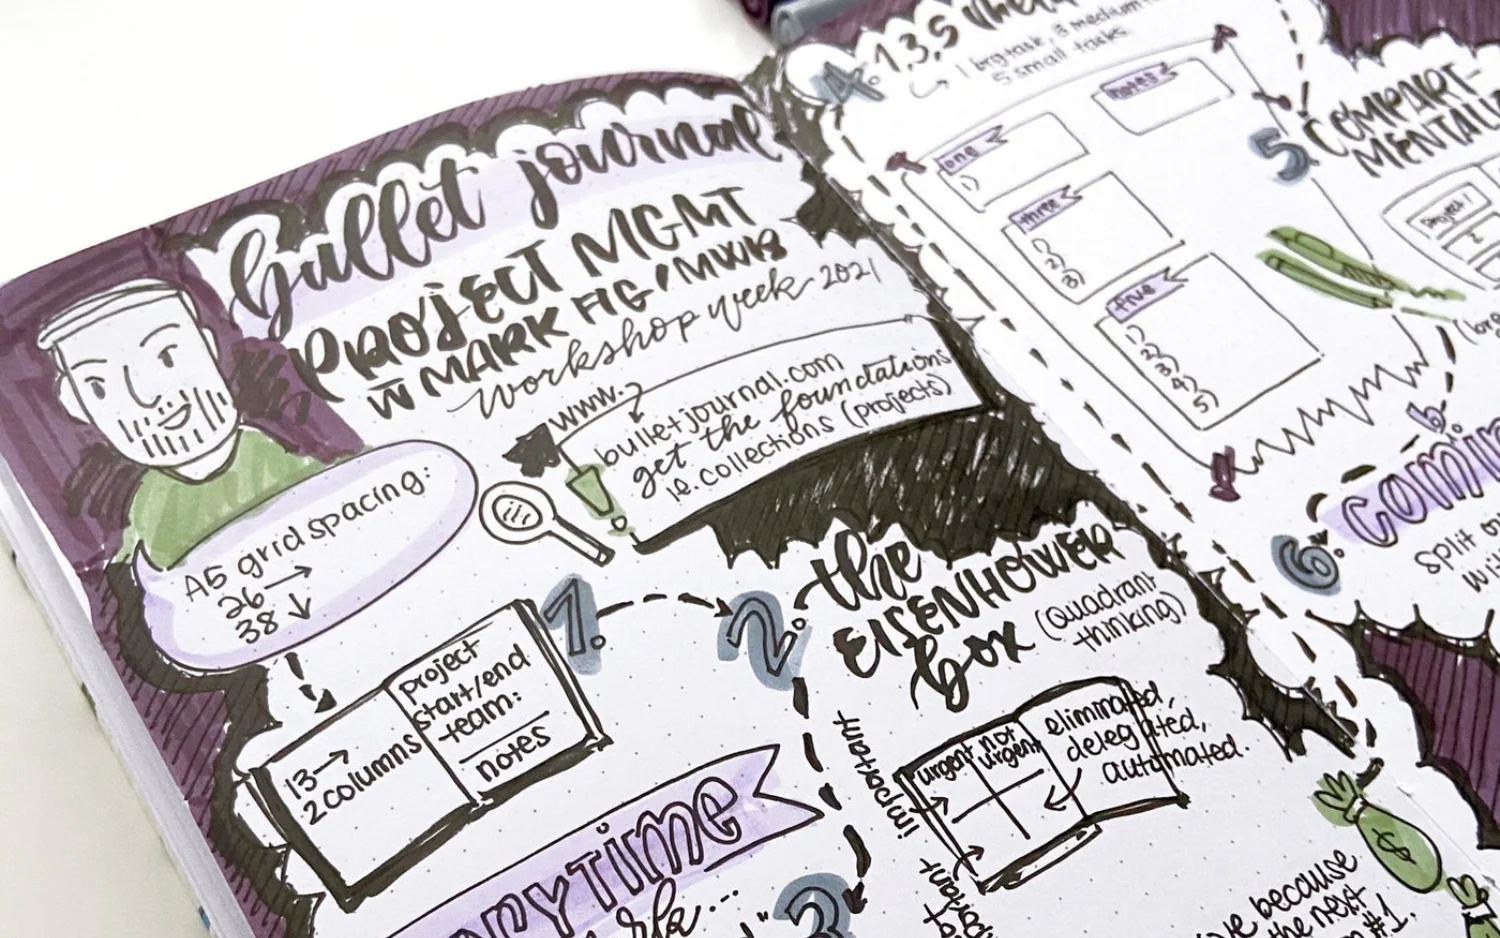 Bullet journal
PROJECT MGMT
W MARK FIG/MWIB
workshop week 2021
www.
bulletjournal.com
get the foundations
ie. collections (projects)
A5 grid spacing:
26 →
38 ↓
1.
13 →
2 columns
project
start/end
team:
notes
2.
the
EISENHOWER
box
(quadrant
thinking)
important
urgent
not
urgent
eliminated,
delegated,
automated.
3
4. 1,3,5
1 big task, 3 medium
5 small tasks
notes
one
1)
three
1)
2)
3)
five
1)
2)
3)
4)
5)
5.
COMPART-
project 1
6.
split
$
because
the next
#1.